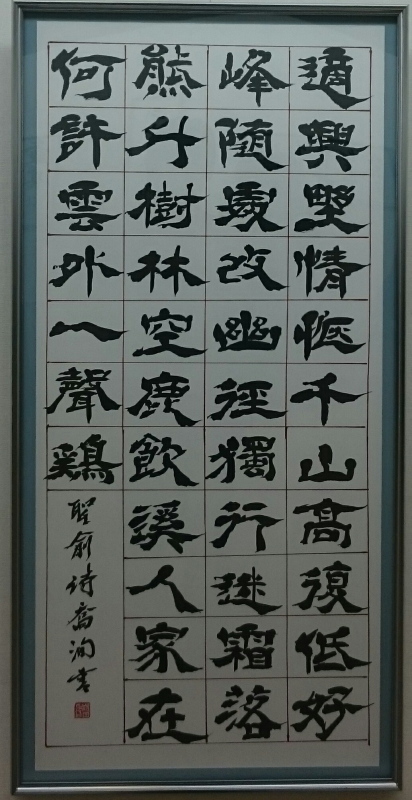 適與野情愜千山高復低好
峰隨處改幽徑獨行迷霜落
熊升樹林空鹿飲溪人家在
何許雲外一聲鷄
聖俞詩喬洵書